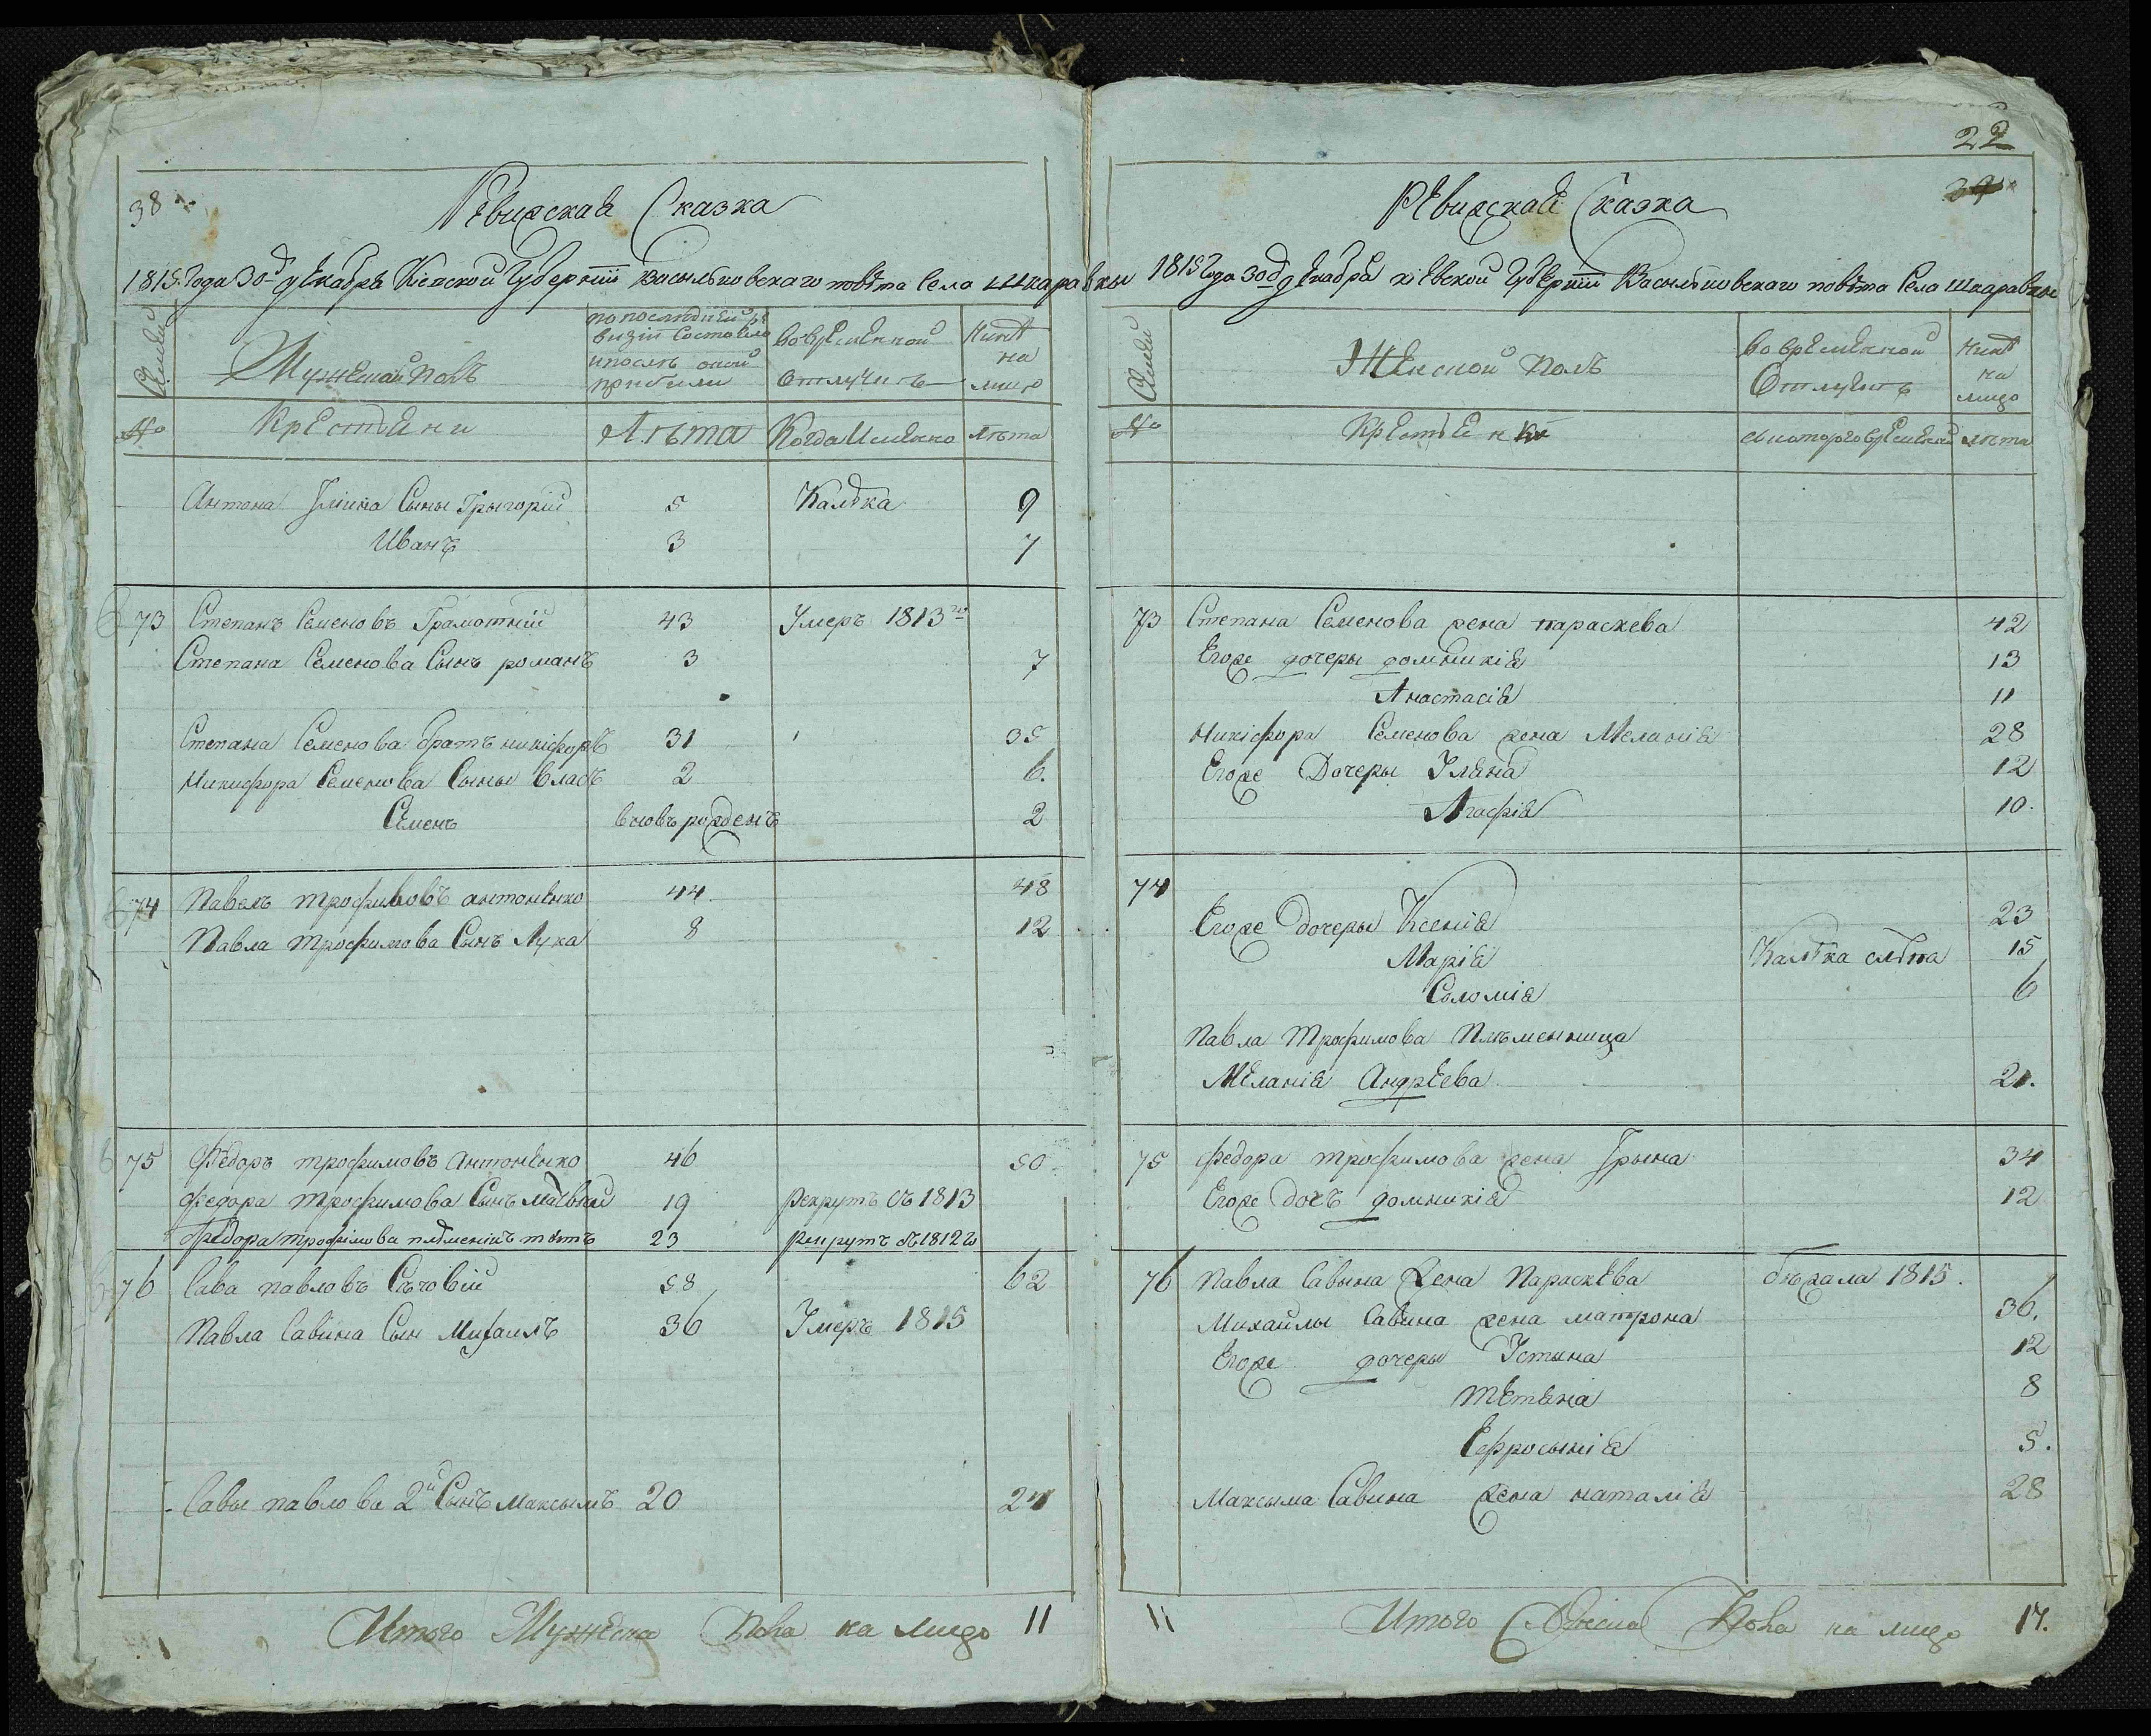 38
Ревизская Сказка
1815 Года 30 д декабря Кіевской Губерніи Васильковскаго повѣта Села Шкаравки
Семьи
Мужеской полъ
по последней ре
визіи состояло
и послѣ оной
прибыли
во временной
отлучкѣ
Нинѣ
на
лицо
№
Крестьяни
Лѣта
Когда Именно
лѣта
Антона Іліина Сыны Грыгорій 5 Калѣка 9
Иванъ 3 7
73 Степанъ Семеновъ Грамотній 43 Умеръ 1813 го
Степана Семенова Сынъ романъ 3 7
Степана Семенова братъ никіфоръ 31 35
Никифора Семенова Сыны Власъ 2 6.
Семенъ вновъ рожденъ 2
74 Павелъ трофимовъ антоненко 44 48
Павла трофимова Сынъ Лука 8 12
75 Федоръ трофимовъ Антоненко 46 50
Федора трофимова Сынъ Матвѣй 19 рекрутъ съ 1813
Федора трофімова племенікъ титъ 23 рекрутъ съ 1812 го
76 Сава павловъ Сѣчовій 58 62
Павла Савина Сын Михаилъ 36 Умеръ 1815
Савы павлова 2й Сынъ Максымъ 20 24
Итого Мужеска Пола на лицо 11
22
39
Ревизская Сказка
1815 Года 30 д декабря кіевской Губерніи Васильковскаго повѣта Села шкаравки
Семьи
Женской полъ
во временной
Отлучкѣ
Нинѣ
на
лицо
№
Крестьянки
съ которого времени
лѣта
73 Степана Семенова жена параскева 42
Егоже дочеры домникія 13
Анастасія 11
Никіфора Семенова жена Меланія 28
Егоже Дочеры Уляна 12
Агафія 10.
74
Егоже дочеры Ксенія 23
Марія Калѣка слѣпа 15
Соломія 6
Павла Трофимова Племенница
Меланія Андреева 21.
75 Федора трофимова жена Ірына 34
Егоже дочъ домникія 12
76 Павла Савына жена Параскева бѣжала 1815.
Михайлы Савина жена матрона 36.
Егоже дочеры Устына 12
тетяна 8
Ефросынія 5.
Максыма Савина жена наталія 28
11
Итого Женска Пола на лицо 17.